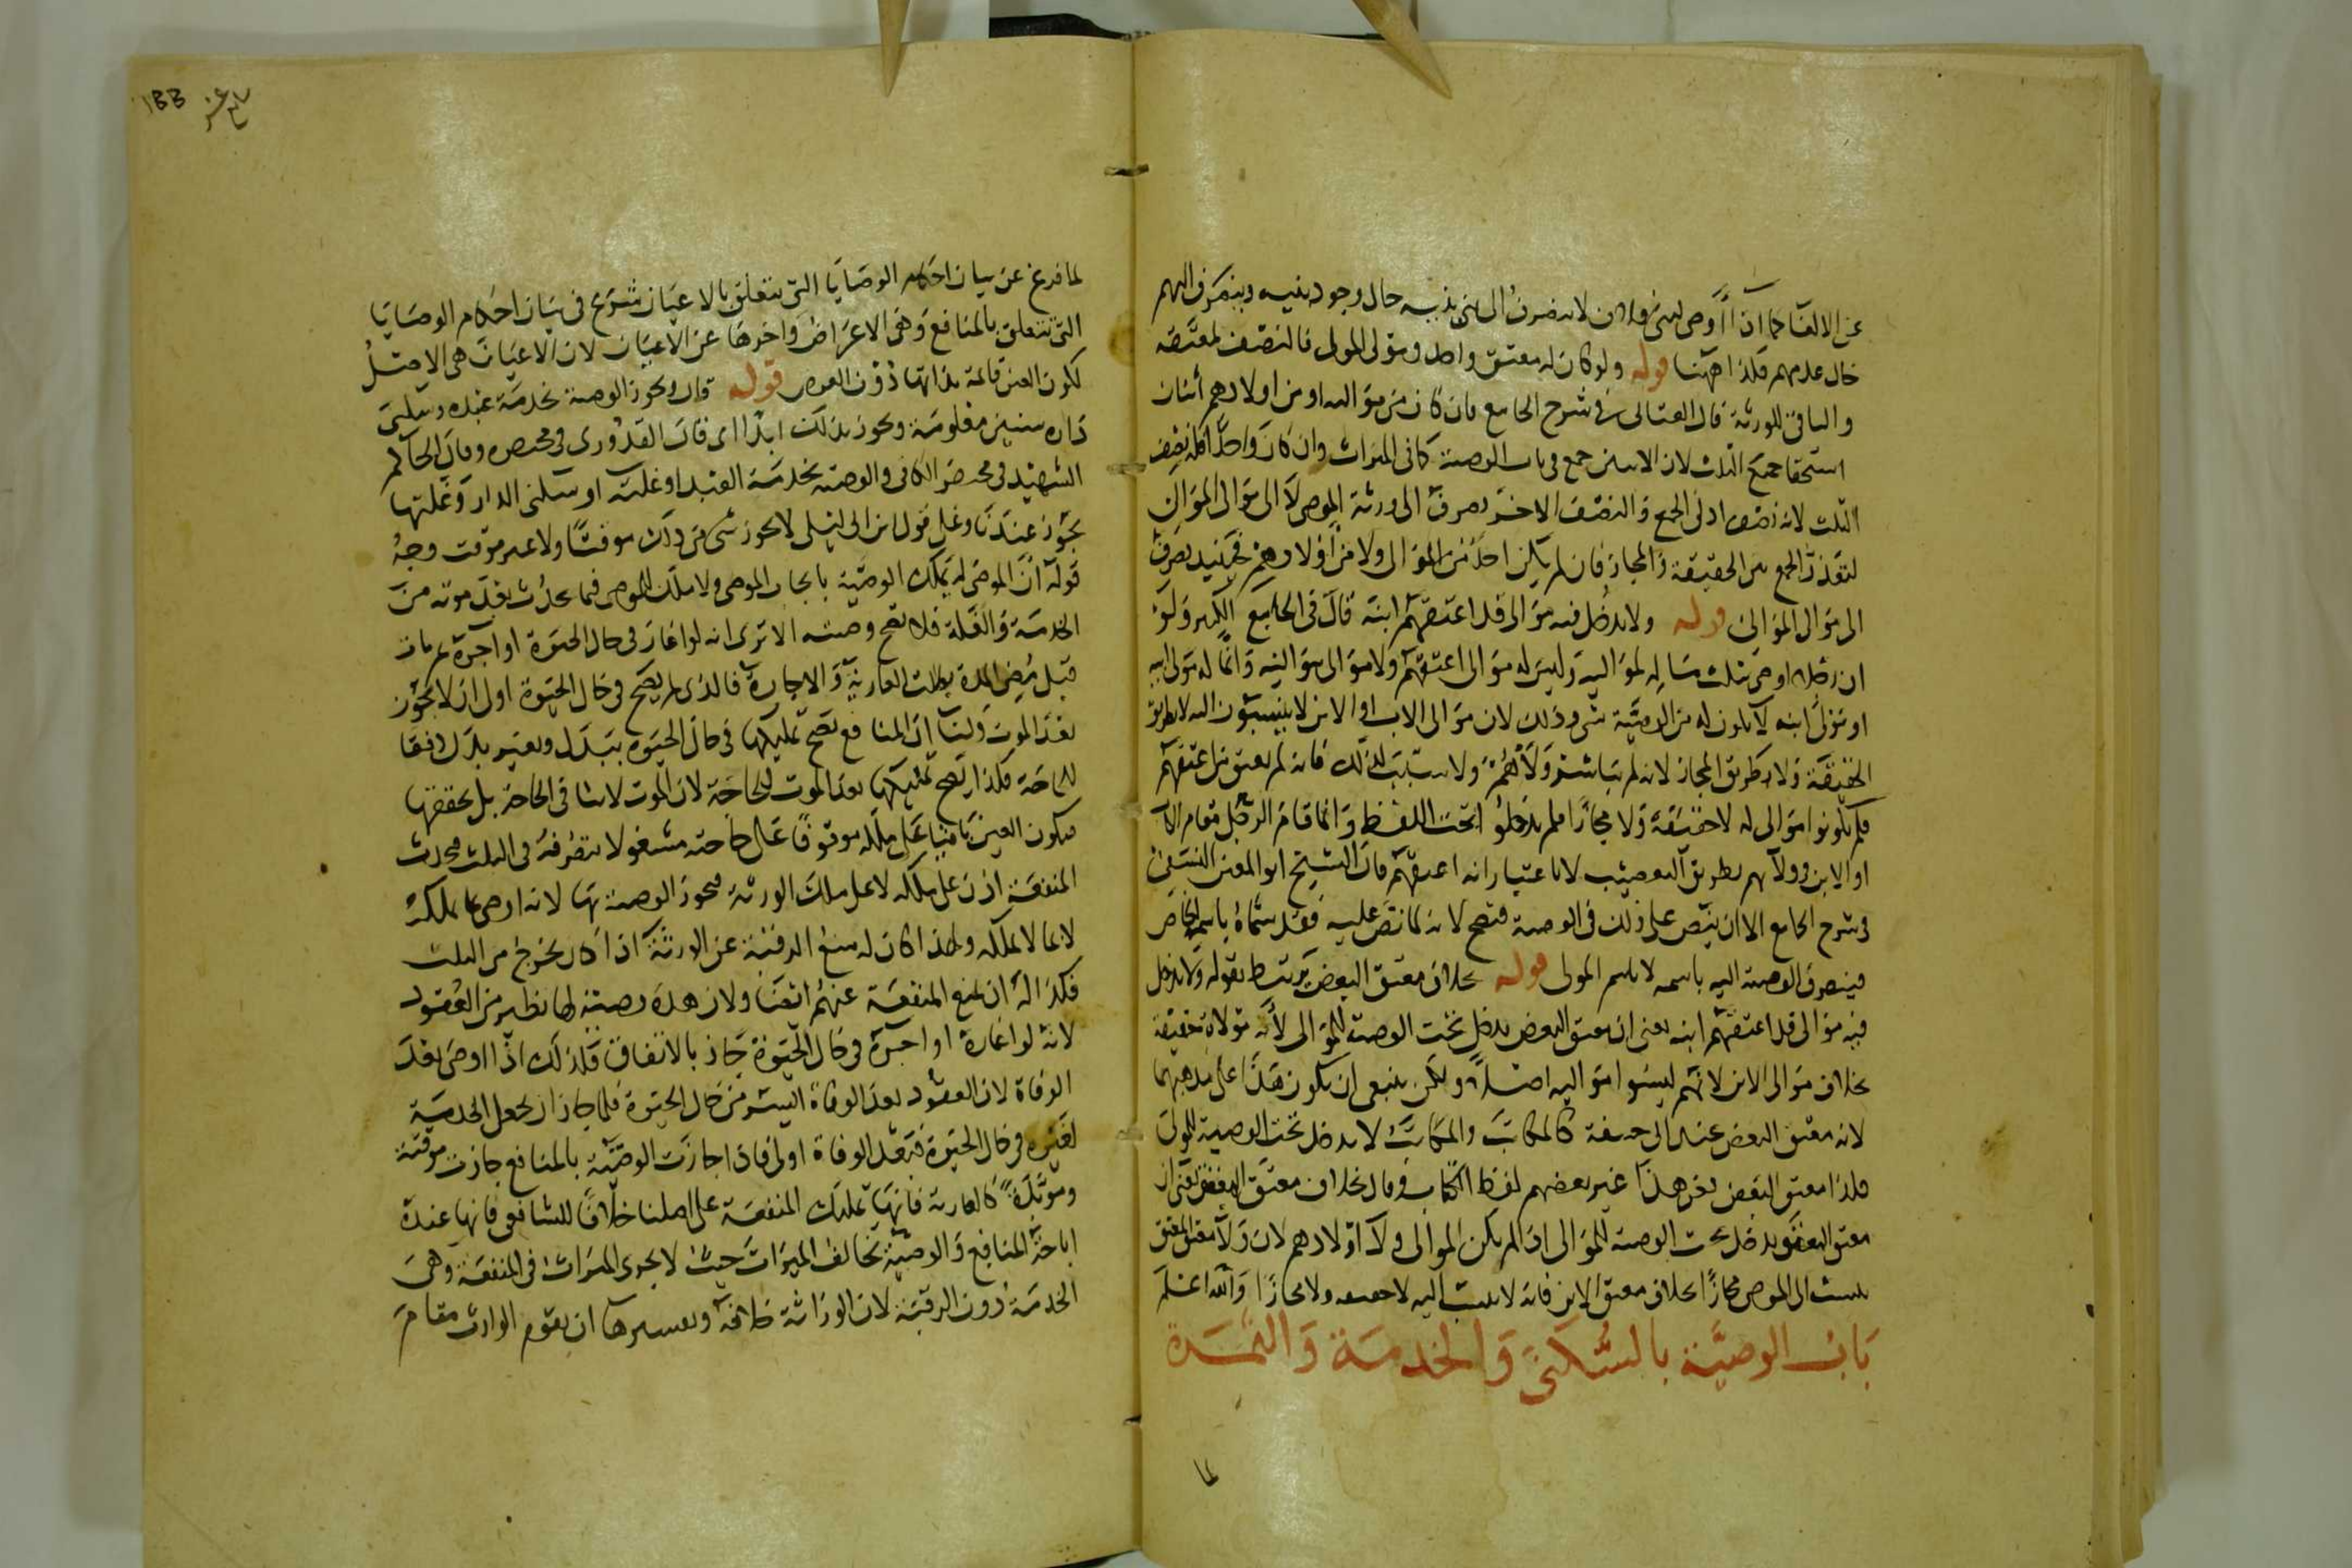 عن الالغا كما اذا اوصى لبنى فلان لا يصرف الى بنى بنيه حال وجود بنيه وينصرف اليهم
حال عدمهم فكذا ههنا قوله ولو كان له معتق واحد ومولى المولى فالنصف لمعتقه
والباقى للورثة قال العتابى فى شرح الجامع فان كان من مواليه او من اولادهم اثنان
استحقا جميع الثلث لان الاثنين جمع فى باب الوصية كما فى الميراث وان كان واحدا فله نصف
الثلث لانه نصف ادنى الجمع والنصف الاخر يصرف الى ورثة الموصى لا الى موالى الموالى
لتعذر الجمع بين الحقيقة والمجاز فان لم يكن احد من الموالى ولا من اولادهم فحينئذ يصرف
الى موالى الموالى قوله ولا يدخل فيه موالى قد اعتقهم ابنه قال فى الجامع الكبير ولو
ان رجلا اوصى بثلث ماله لمواليه وليس له موالى اعتقهم ولا موالى مواليه وانما له مولى ابيه
او مولى ابنه لا يكون له من الوصية شى وذلك لان موالى الاب او الابن لا ينسبون اليه لا بطريق
الحقيقة ولا بطريق المجاز لانه لم يباشر ولاهم ولا سبب لذلك فانه لم يعتق من اعتقهم
فلم يكونوا موالى له لا حقيقة ولا مجازا فلم يدخلوا تحت اللفظ وانما قام الرجل مقام الاب
او الابن فى ولائهم بطريق التعصيب لا باعتبار انه اعتقهم قال الشيخ ابو المعين النسفى
فى شرح الجامع الا ان ينص على ذلك فى الوصية فتصح لانه لما نص عليه فقد سماه باسمه الخاص
فينصرف الوصية اليه باسمه لا باسم المولى قوله بخلاف معتق البعض يرتبط بقوله ولا يدخل
فيه موالى قد اعتقهم ابنه يعنى ان معتق البعض يدخل تحت الوصية للموالى لانه مولاه حقيقة
بخلاف موالى الابن لانهم ليسوا مواليه اصلا ولكن ينبغى ان يكون هذا على مذهبهما
لانه معتق البعض عند ابى حنيفة كالمكاتب والمكاتب لا يدخل تحت الوصية للمولى
فكذا معتق البعض وغير هذا غير بعضهم لفظ الكتاب وقال بخلاف معتق المعتق يعنى ان
معتق المعتق يدخل تحت الوصية للموالى اذا لم يكن الموالى ولا اولادهم لان ولا معتق المعتق
ينسب الى الموصى مجازا بخلاف معتق الابن فانه لا ينسب اليه لا حقيقة ولا مجازا والله اعلم
باب الوصية بالسكنى والخدمة والثمرة
لما
لما فرغ عن بيان احكام الوصايا التى تتعلق بالاعيان شرع فى بيان احكام الوصايا
التى تتعلق بالمنافع وهى الاعراض واخرها عن الاعيان لان الاعيان هى الاصل
لكون العين قائمة بذاتها دون العرض قوله قال وتجوز الوصية بخدمة عبده وسكنى
داره سنين معلومة وتجوز بذلك ابدا اى قال القدورى فى مختصره وقال الحاكم
الشهيد فى مختصر الكافى والوصية بخدمة العبد او غلته او سكنى الدار وغلتها
يجوز عندنا وعلى قول ابن ابى ليلى لا يجوز شى من ذلك موقتا ولا غير موقت وجه
قوله ان الموصى له يملك الوصية بايجاب الموصى ولا ملك للموصى فيما يحدث بعد موته من
الخدمة والغلة فلا تصح وصيته الا ترى انه لو اعار فى حال الحيوة او اجره ثم مات
قبل مضى المدة بطلت العارية والاجارة فالذى لم يصح فى حال الحيوة اولى ان لا يجوز
بعد الموت ولنا ان المنافع تصح تمليكها فى حال الحيوة ببدل وبغير بدل دفعا
للحاجة فكذا يصح تمليكها بعد الموت للحاجة لان الموت لا ينافى الحاجة بل يحققها
فيكون العين باقيا على ملكه موقوفا على حاجته مشغولا بتصرفه فى الثلث فحدث
المنفعة اذن على ملكه لا على ملك الورثة فتجوز الوصية بها لانه اوصى بما يملكه
لا بما لا يملكه ولهذا كان له منع الرقبة عن الورثة اذا كان يخرج من الثلث
فكذا له ان يمنع المنفعة عنهم ايضا ولان هذه وصية لها نظير من العقود
لانه لو اعاره او اجره فى حال الحيوة جاز بالاتفاق فكذلك اذا اوصى بعد
الوفاة لان العقود بعد الوفاة ايسر من حال الحيوة فلما جاز ان يجعل الخدمة
لغيره فى حال الحيوة فبعد الوفاة اولى فاذا جازت الوصية بالمنافع جازت موقتة
وموبدة كالعارية فانها تمليك المنفعة على اصلنا خلافا للشافعى فانها عنده
اباحة المنافع والوصية تخالف الميراث حيث لا يجرى الميراث فى المنفعة وهى
الخدمة دون الرقبة لان الوراثة خلافة وتفسيرها ان يقوم الوارث مقام